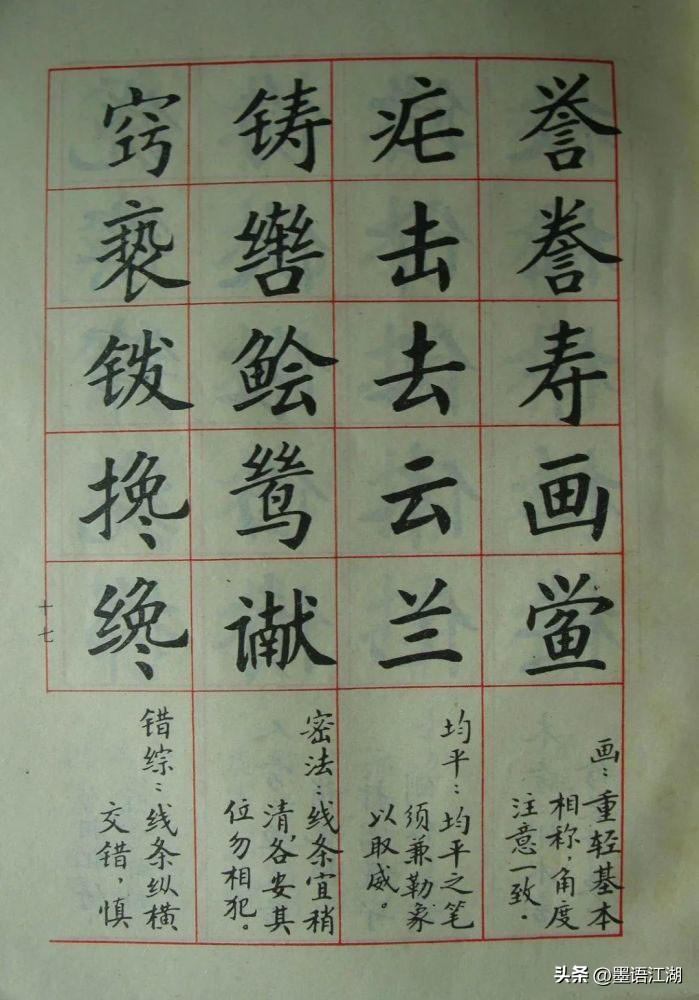 誉誊寿画鲎
画：重轻基本
相称，角度
注意一致.
击去云兰
均平：均平之笔
须兼勒象
以取威。
铸辔鲙鸶谳
密法：线条宜稍
清，各安其
位勿相犯。
窍亵钹搀
错综：线条纵横
交错，慎
十七
头条 @墨语江湖